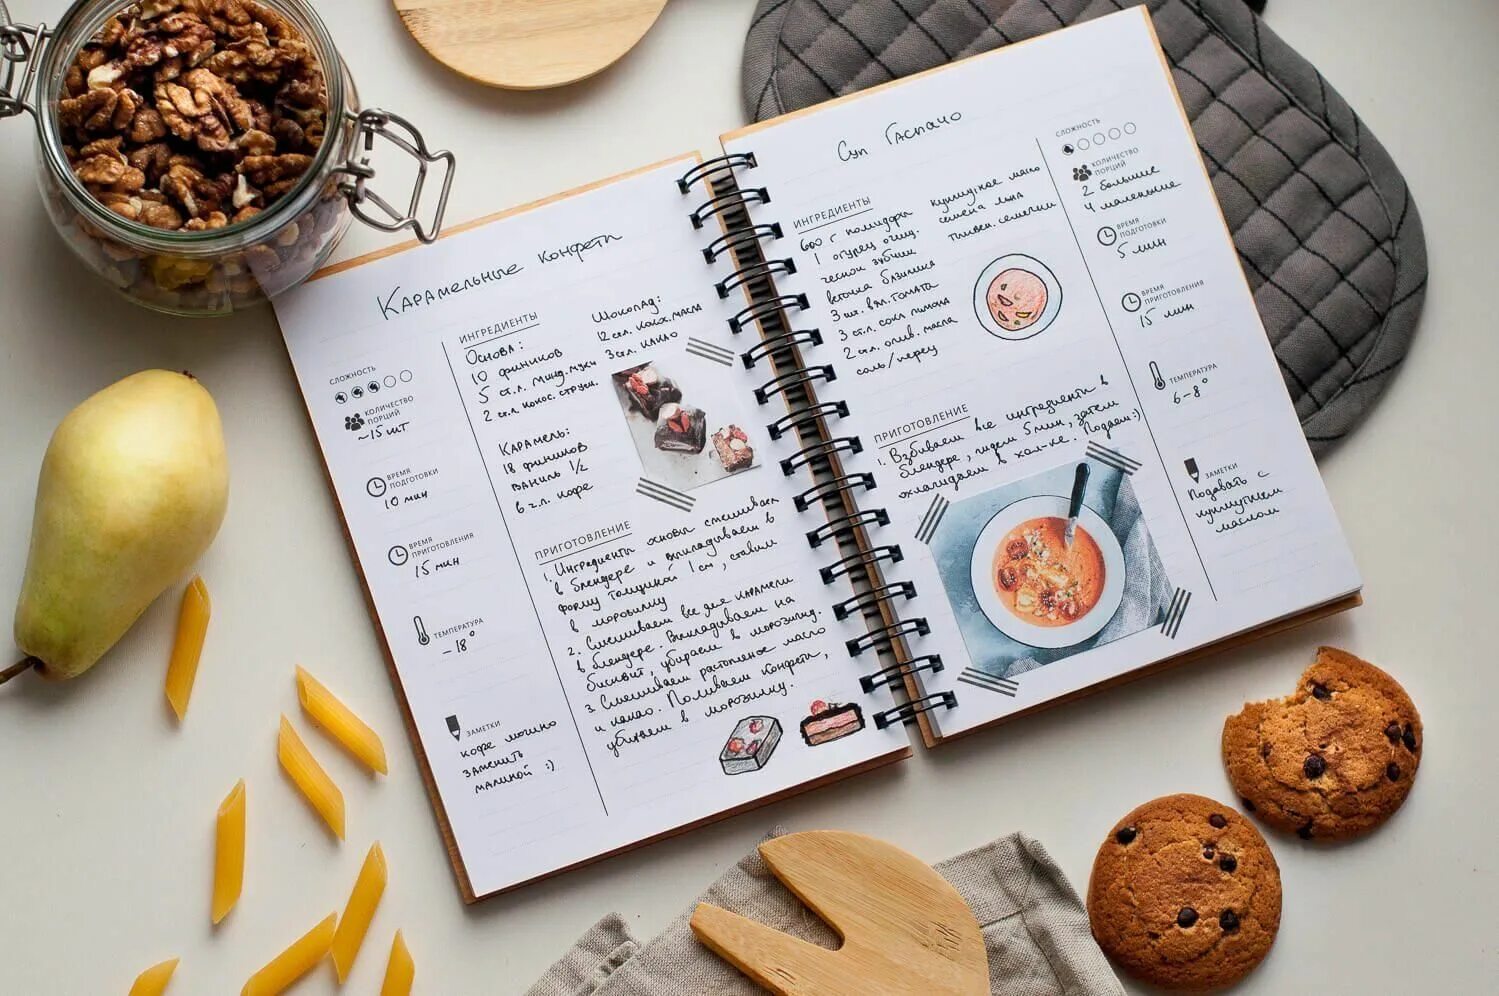 Карамельные конфети
СЛОЖНОСТЬ
КОЛИЧЕСТВО
ПОРЦИЙ
~15 шт
ВРЕМЯ
ПОДГОТОВКИ
10 мин
ВРЕМЯ
ПРИГОТОВЛЕНИЯ
15 мин
ТЕМПЕРАТУРА
-18°
ЗАМЕТКИ
кофе можно
заменить
малиной :)
ИНГРЕДИЕНТЫ
Основа:
10 фиников
5 ст.л. минд. муки
2 ст.л. кокос. струж.
Карамель:
18 фиников
ваниль 1/2
6 г.л. кофе
Шоколад:
12 ст.л. кок. масла
3 ст.л. какао
ПРИГОТОВЛЕНИЕ
1. Ингредиенты основы смешиваем
в блендере и выкладываем в
форму толщиной 1 см, ставим
в морозилку
2. Смешиваем все для карамели
в блендере. Выкладываем на
бисквит, убираем в морозилку.
3. Смешиваем растопленное масло
и какао. Поливаем конфети,
убираем в морозилку.
Суп Гаспачо
ИНГРЕДИЕНТЫ
600 г помидоры
1 огурец очищ.
чеснок зубчик
веточка базилика
3 шт. вял. томата
3 ст.л. сока лимона
2 ст.л. олив. масла
соль/перец
кунжутное масло
семена льна
тыквен. семечки
ПРИГОТОВЛЕНИЕ
1. Взбиваем все ингредиенты в
блендере, ждем 5 мин, затем
охлаждаем в хол-ке. Подаем :)
СЛОЖНОСТЬ
КОЛИЧЕСТВО
ПОРЦИЙ
2 большие
4 маленькие
ВРЕМЯ
ПОДГОТОВКИ
5 мин
ВРЕМЯ
ПРИГОТОВЛЕНИЯ
15 мин
ТЕМПЕРАТУРА
6-8°
ЗАМЕТКИ
Подавать с
кунжутным
маслом